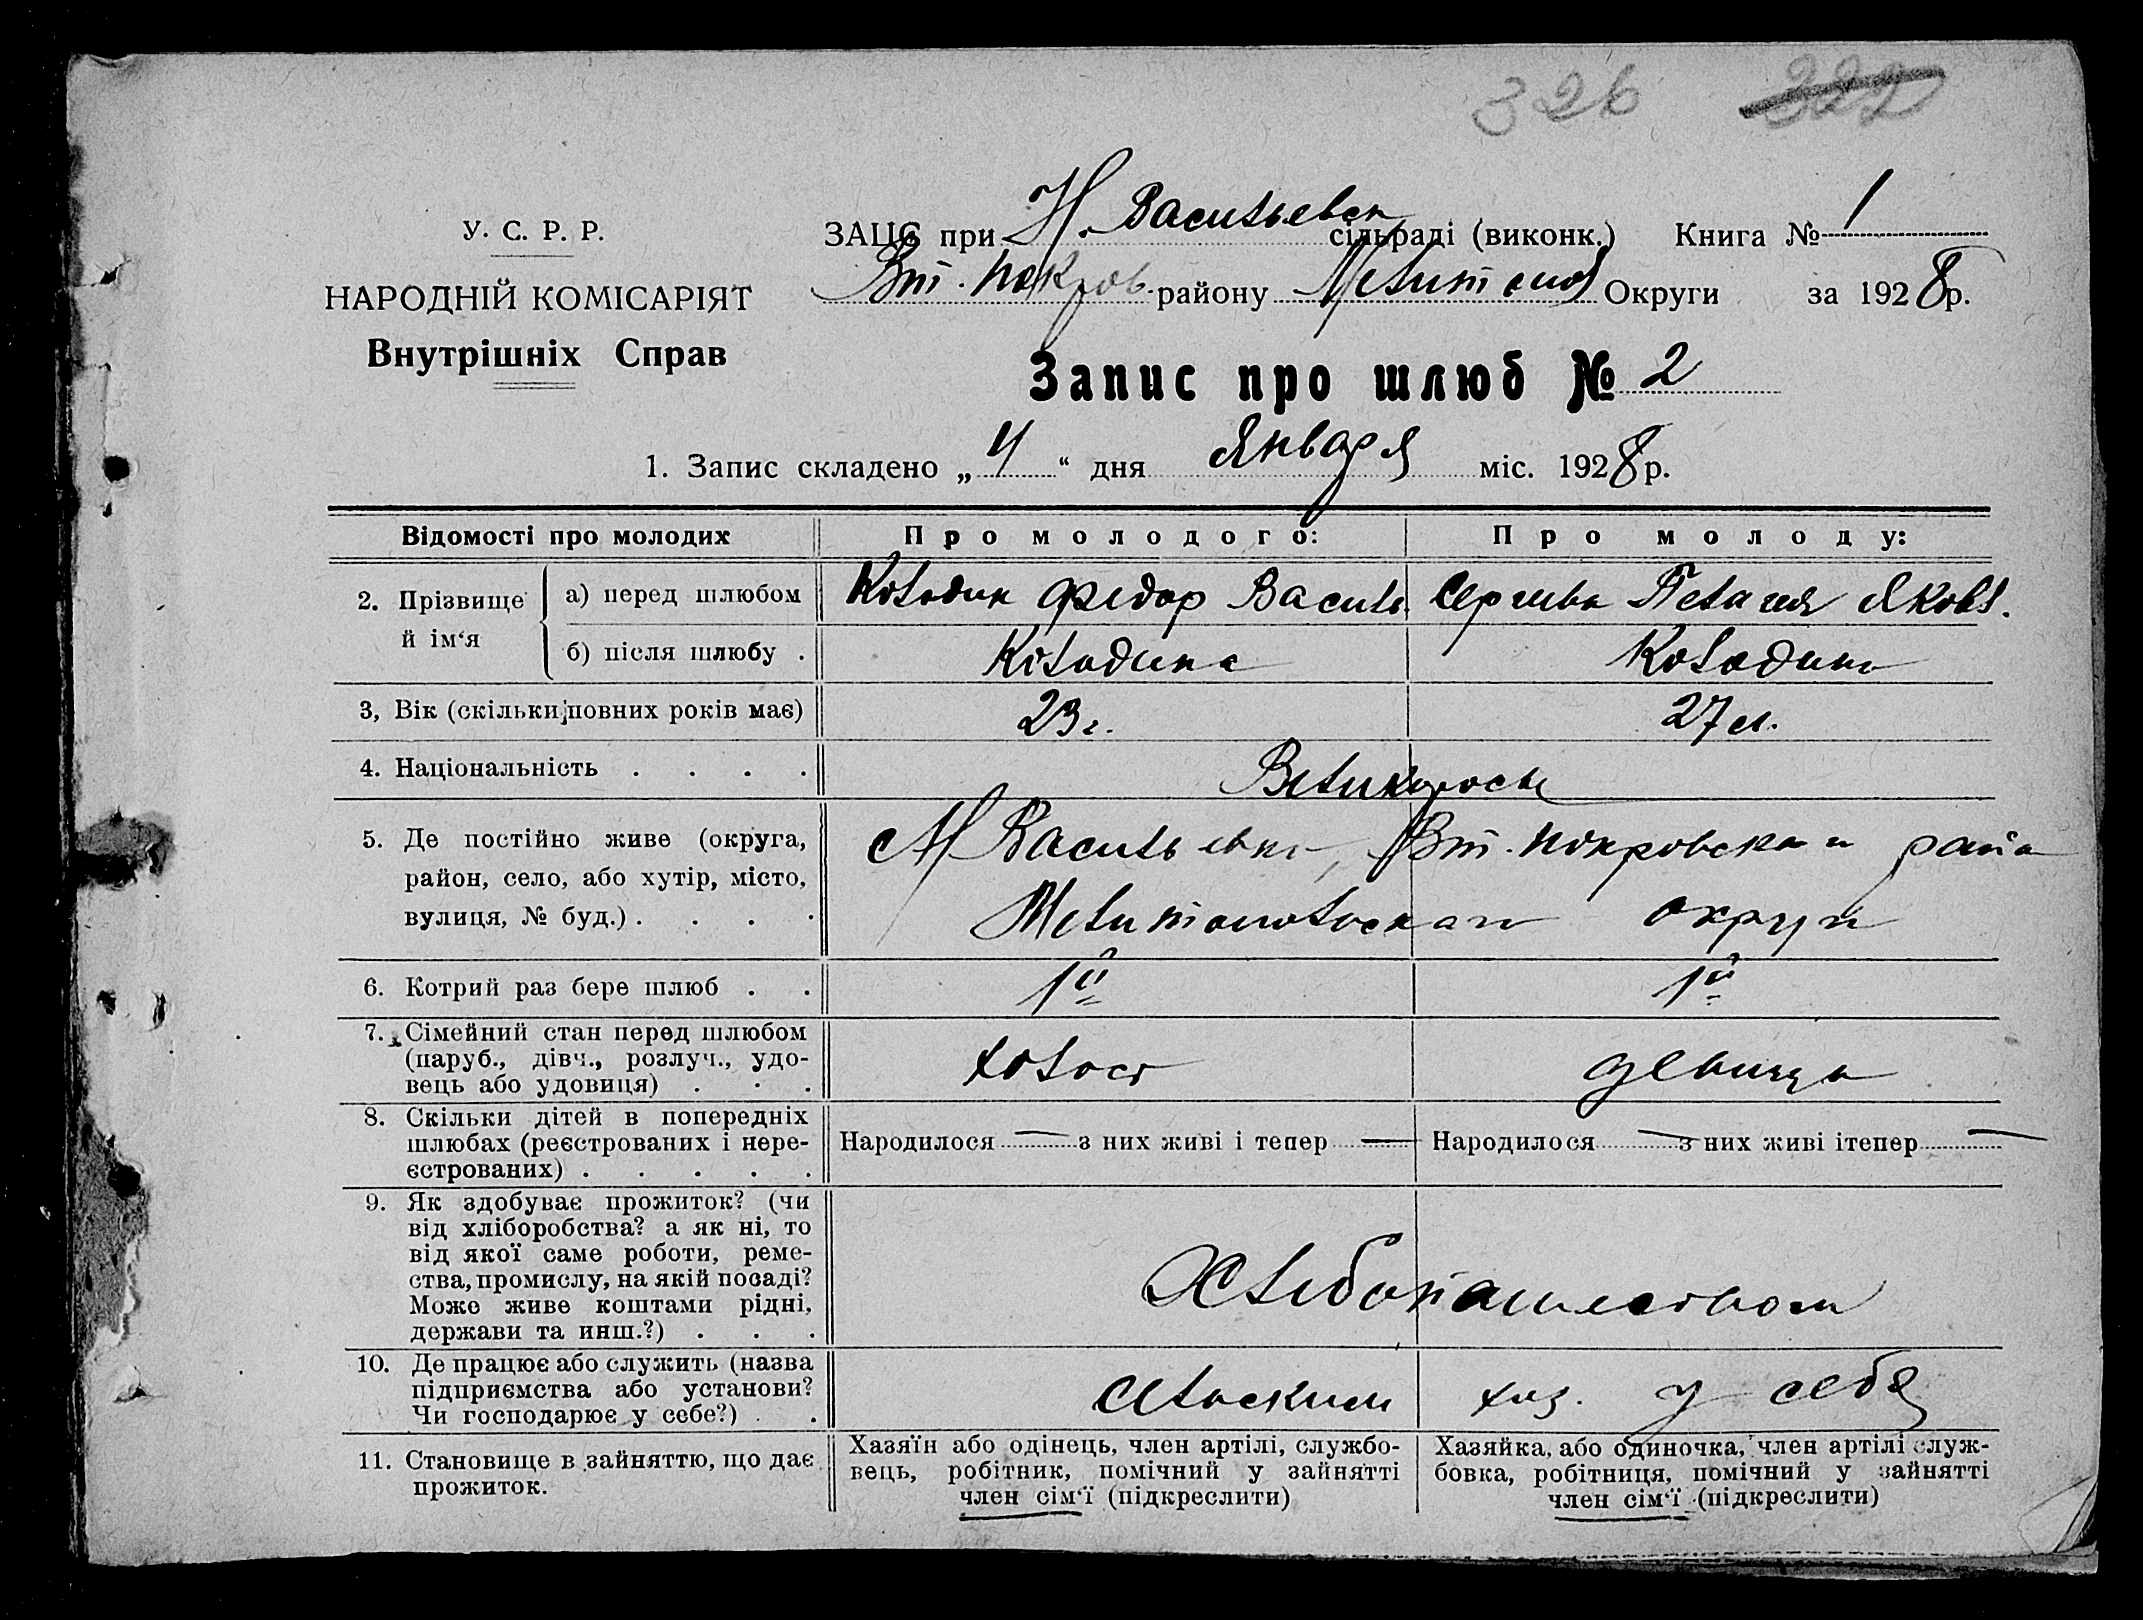 326 322
У. С. Р. Р.
НАРОДНІЙ КОМІСАРІЯТ
Внутрішніх Справ
ЗАЦС при Н. Васильевск сільраді (виконк.) Книга № 1
Вт. Покров. району Мелитопол Округи за 1928 р.
Запис про шлюб № 2
1. Запис складено „ 4 “ дня Января міс. 1928 р.
Відомості про молодих Про молодого: Про молоду:
2. Прізвище й ім‘я
а) перед шлюбом Колодин Федор Василь. Сергева Пелагея Яковл.
б) після шлюбу . Колодина Колодина
3, Вік (скільки повних років має) 23 г. 27 л.
4. Національність . . . . Великоросы
5. Де постійно живе (округа, Н Васильевка, Вт. Покровскаи района
район, село, або хутір, місто,
вулиця, № буд.) . . . . Мелитопольскаи округи
6. Котрий раз бере шлюб . . 1й 1й
7. Сімейний стан перед шлюбом
(паруб., дівч., розлуч., удо- холост девица
вець або удовиця) . . .
8. Скільки дітей в попередніх
шлюбах (реєстрованих і нере- Народилося — з них живі і тепер — Народилося — з них живі ітепер —
єстрованих) . . . . .
9. Як здобуває прожиток? (чи
від хліборобства? а як ні, то
від якої саме роботи, реме-
ства, промислу, на якій посаді? Хлебопашеством
Може живе коштами рідні,
держави та инш.?) . . .
10. Де працює або служить (назва
підприємства або установи? сельским хоз. у себя
Чи господарює у себе?) . .
11. Становище в зайняттю, що дає
прожиток.
Хазяїн або одінець, член артілі, службо-
вець, робітник, помічний у зайнятті
член сім‘ї (підкреслити)
Хазяйка, або одиночка, член артілі служ-
бовка, робітниця, помічний у зайнятті
член сім‘ї (підкреслити)